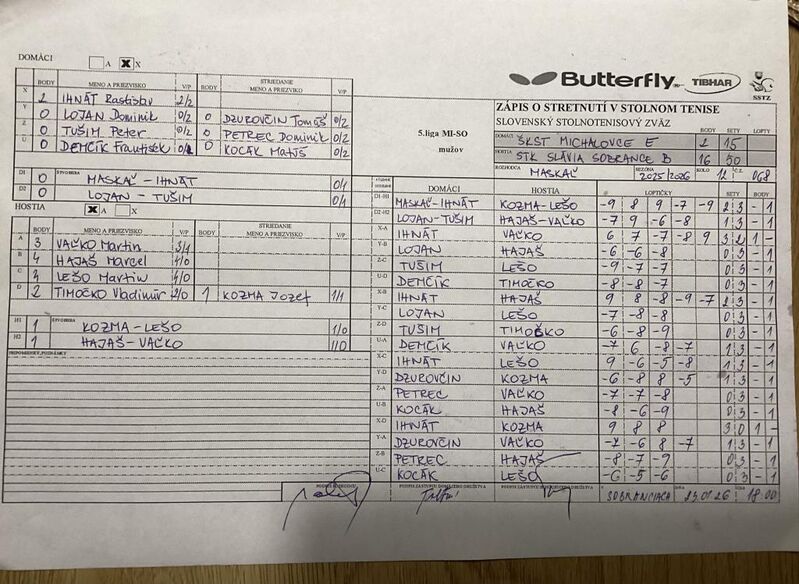 DOMÁCI A X X
BODY MENO A PRIEZVISKO V/P BODY STRIEDANIE MENO A PRIEZVISKO V/P
X 2 IHNÁT Rastislav 2/2
Y 0 LOJAN Dominik 0/2 0 DZUROVČIN Tomáš 0/2
Z 0 TUŠIM Peter 0/2 0 PETREC Dominik 0/2
U 0 DEMČÍK František 0/2 0 KOCÁK Matúš 0/2
D1 0 ŠTVORHRA MASKAĽ - IHNÁT 0/1
D2 0 LOJAN - TUŠIM 0/1
HOSTIA X A X
BODY MENO A PRIEZVISKO V/P BODY STRIEDANIE MENO A PRIEZVISKO V/P
A 3 VAĽKO Martin 3/1
B 4 HAJAŠ Marcel 4/0
C 4 LEŠO Martin 4/0
D 2 TIMOČKO Vladimír 2/0 1 KOZMA Jozef 1/1
H1 1 ŠTVORHRA KOZMA - LEŠO 1/0
H2 1 HAJAŠ - VAĽKO 1/0
PRIPOMIENKY, POZNÁMKY
Butterfly TIBHAR SSTZ
5.liga MI-SO
mužov
ZÁPIS O STRETNUTÍ V STOLNOM TENISE
SLOVENSKÝ STOLNOTENISOVÝ ZVÄZ
DOMÁCI ŠKST MICHALOVCE E BODY 2 SETY 15 LOPTY
HOSTIA STK SLÁVIA SOBRANCE B 16 50
ROZHODCA MASKAĽ SEZÓNA 2025/2026 KOLO 12 Č.Z. 068
DOMÁCI HOSTIA LOPTIČKY SETY BODY
D1-H1 MASKAĽ-IHNÁT KOZMA-LEŠO -9 8 9 -7 -9 2:3 - 1
D2-H2 LOJAN-TUŠIM HAJAŠ-VAĽKO -7 9 -6 -8 1:3 - 1
X-A IHNÁT VAĽKO 6 7 -7 -8 9 3:2 1 -
Y-B LOJAN HAJAŠ -6 -6 -8 0:3 - 1
Z-C TUŠIM LEŠO -9 -7 -7 0:3 - 1
U-D DEMČÍK TIMOČKO -8 -8 -7 0:3 - 1
X-B IHNÁT HAJAŠ 9 8 -8 -9 -7 2:3 - 1
Y-C LOJAN LEŠO -7 -8 -8 0:3 - 1
Z-D TUŠIM TIMOČKO -6 -8 -9 0:3 - 1
U-A DEMČÍK VAĽKO -7 6 -8 -7 1:3 - 1
X-C IHNÁT LEŠO 9 -6 -5 -8 1:3 - 1
Y-D DZUROVČIN KOZMA -6 -8 8 -5 1:3 - 1
Z-A PETREC VAĽKO -7 -7 -8 0:3 - 1
U-B KOCÁK HAJAŠ -8 -6 -9 0:3 - 1
X-D IHNÁT KOZMA 9 8 8 3:0 1 -
Y-A DZUROVČIN VAĽKO -7 -6 8 -7 1:3 - 1
Z-B PETREC HAJAŠ -8 -7 -9 0:3 - 1
U-C KOCÁK LEŠO -6 -5 -6 0:3 - 1
PODPIS ROZHODCU PODPIS ZÁSTUPCU DOMÁCEHO DRUŽSTVA V SOBRANCIACH DŇA 23.01.26 18.00